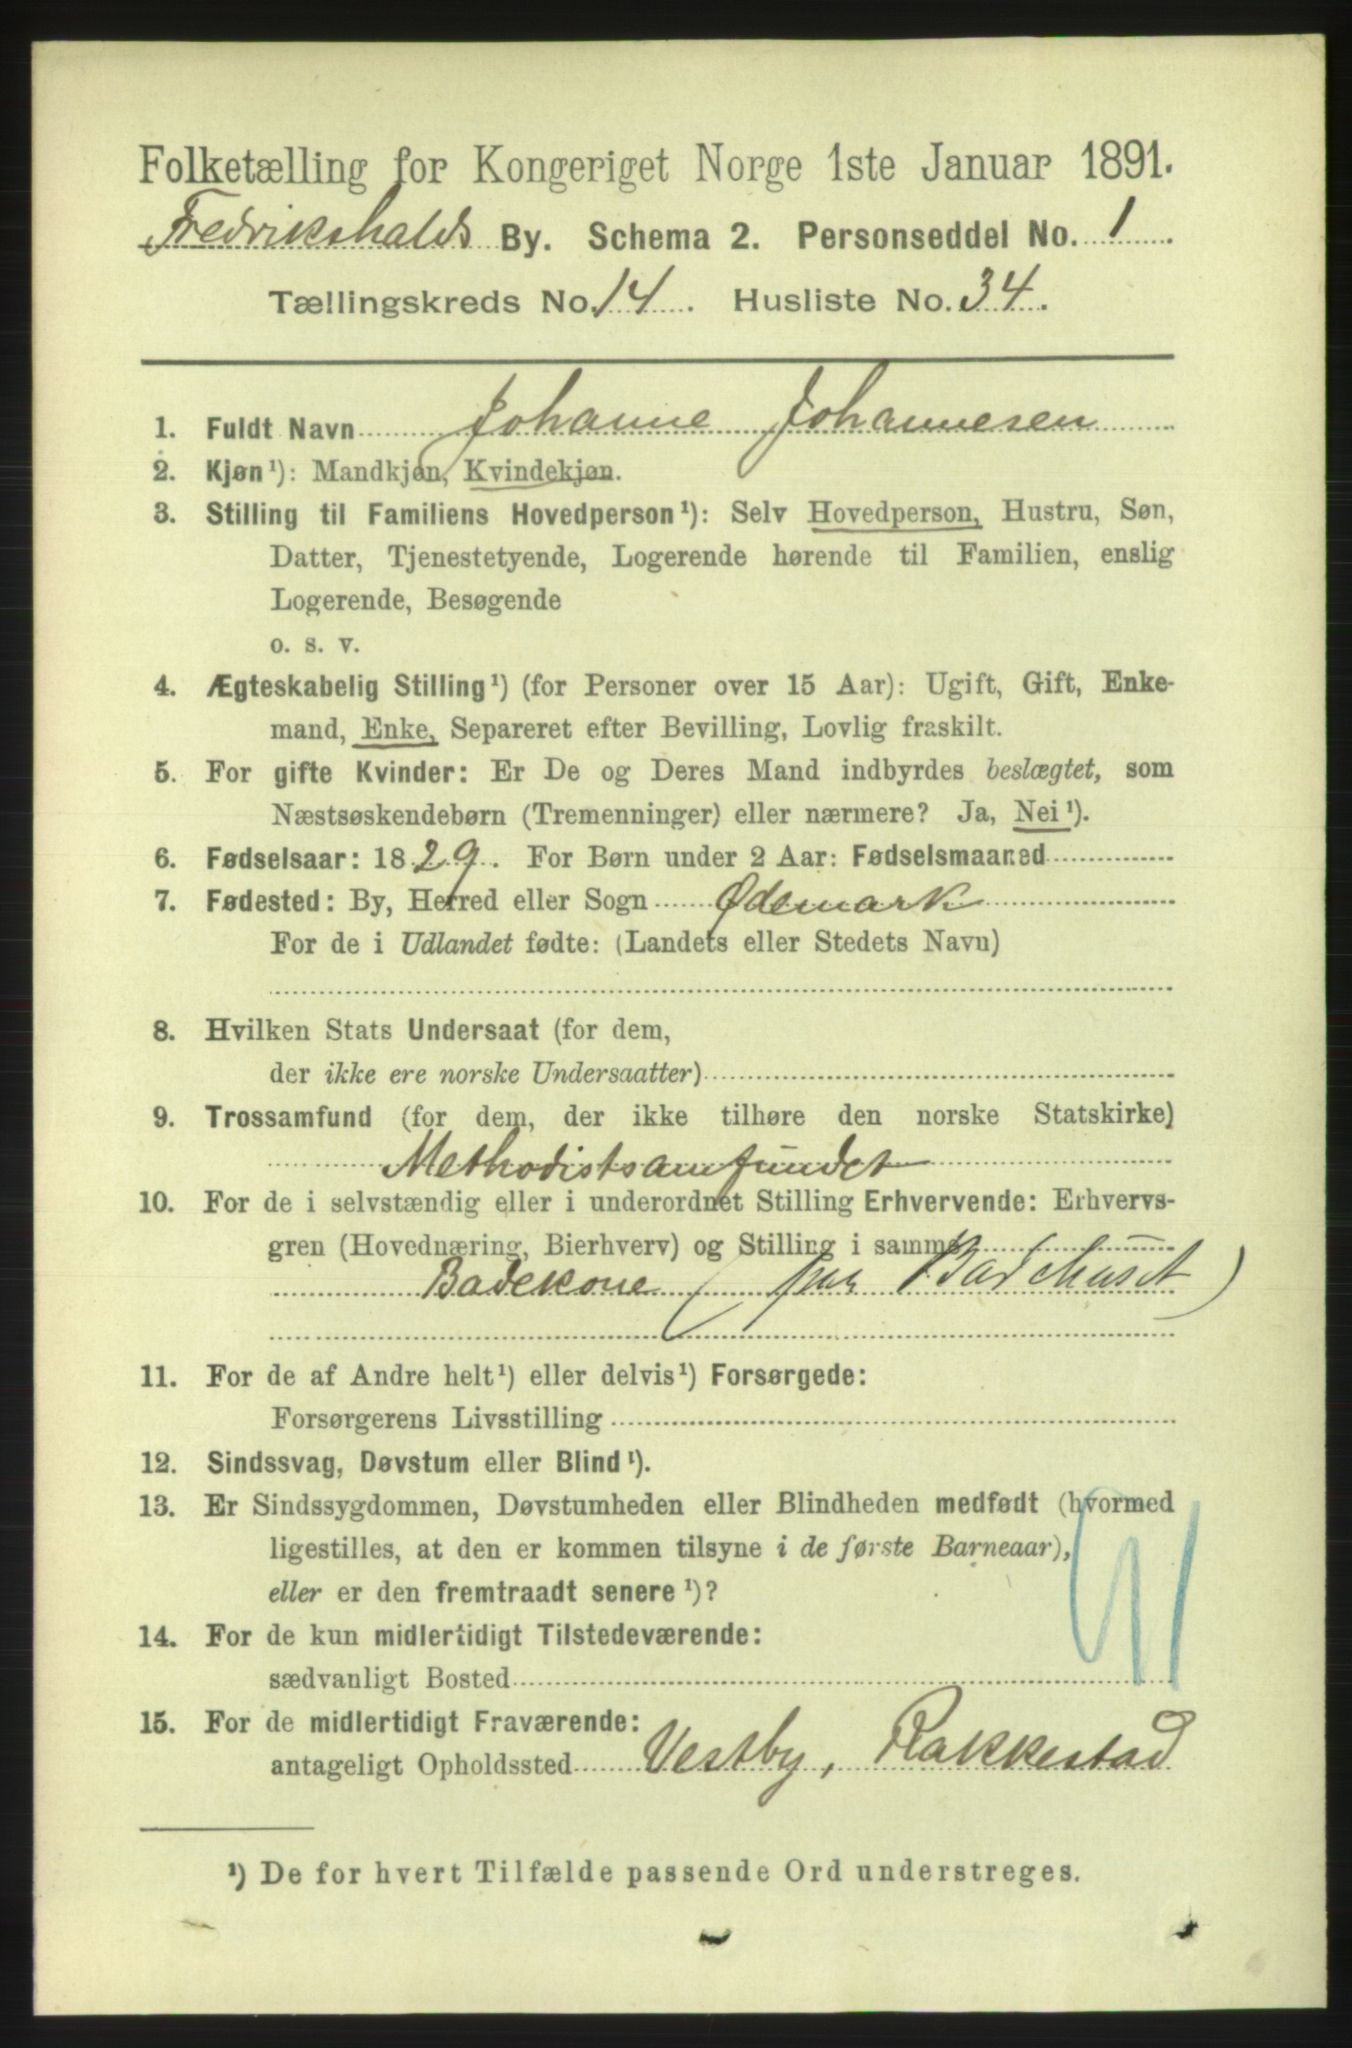 Folketælling for Kongeriget Norge 1ste Januar 1891.
Fredrikshalds By. Schema 2. Personseddel No. 1
Tællingskreds No. 14. Husliste No. 34.
1. Fuldt Navn Johanne Johannesen
2. Kjøn¹): Mandkjøn, Kvindekjøn.
3. Stilling til Familiens Hovedperson¹): Selv Hovedperson, Hustru, Søn,
Datter, Tjenestetyende, Logerende hørende til Familien, enslig
Logerende, Besøgende
o. s. v.
4. Ægteskabelig Stilling¹) (for Personer over 15 Aar): Ugift, Gift, Enke-
mand, Enke, Separeret efter Bevilling, Lovlig fraskilt.
5. For gifte Kvinder: Er De og Deres Mand indbyrdes beslægtet, som
Næstsøskendebørn (Tremenninger) eller nærmere? Ja, Nei¹).
6. Fødselsaar: 1829. For Børn under 2 Aar: Fødselsmaaned
7. Fødested: By, Herred eller Sogn Ødemark
For de i Udlandet fødte: (Landets eller Stedets Navn)
8. Hvilken Stats Undersaat (for dem,
der ikke ere norske Undersaatter)
9. Trossamfund (for dem, der ikke tilhøre den norske Statskirke)
Methodistsamfundet
10. For de i selvstændig eller i underordnet Stilling Erhvervende: Erhvervs-
gren (Hovednæring, Bierhverv) og Stilling i samme
Badekone (paa Badehuset)
11. For de af Andre helt¹) eller delvis¹) Forsørgede:
Forsørgerens Livsstilling
12. Sindssvag, Døvstum eller Blind¹).
13. Er Sindssygdommen, Døvstumheden eller Blindheden medfødt (hvormed
ligestilles, at den er kommen tilsyne i de første Barneaar),
eller er den fremtraadt senere¹)?
91
14. For de kun midlertidigt Tilstedeværende:
sædvanligt Bosted
15. For de midlertidigt Fraværende:
antageligt Opholdssted Vestby, Rakkestad
¹) De for hvert Tilfælde passende Ord understreges.